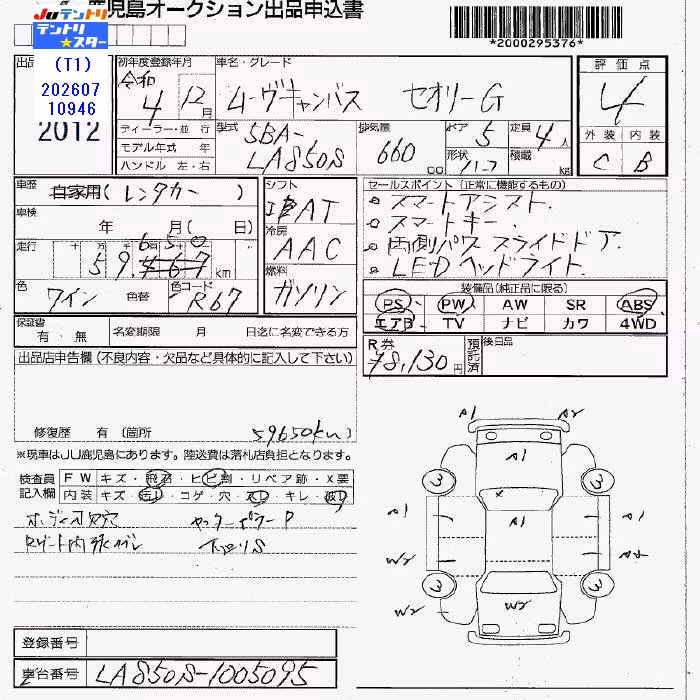 鹿児島オークション出品申込書
JUテントリ
テントリ★スター
*2000295376*
出品
(T1)
202607
10946
2012
初年度登録年月
令和 4年 12月
車名・グレード
ムーヴキャンバス セオリーG
評価点
4
外装 内装
C B
ディーラー・並行
モデル年式 年
ハンドル 左・右
型式
5BA-
LA850S
排気量
660 cc
ドア 5
形状
定員 4人
積載 kg
車歴 自家用(レンタカー)
車検 年 月(日)
走行 十万千百十
59,467 km
650
色 ワイン 色替
色コード R67
シフト
AT
冷房
AAC
燃料
ガソリン
セールスポイント(正常に機能するもの)
スマートアシスト.
スマートキー.
両側パワスライドドア.
LEDヘッドライト.
装備品(純正品に限る)
PS PW AW SR ABS
エアB TV ナビ カワ 4WD
保証書 有・無
名変期限 月 日迄に名変できる方
R券
¥8,130円
預託済
後日品
出品店申告欄(不良内容・欠品など具体的に記入して下さい)
修復歴 有(箇所 59650km)
※現車はJU鹿児島にあります。陸送費は落札店負担となります。
検査員記入欄
FW キズ・飛石・ヒビ割・リペア跡・X要
内装 キズ・・コゲ・穴・・キレ・
A1 A2
A1
3 3
A1 A1
W2
3 3
W2 W2
登録番号
車台番号 LA850S-1005095